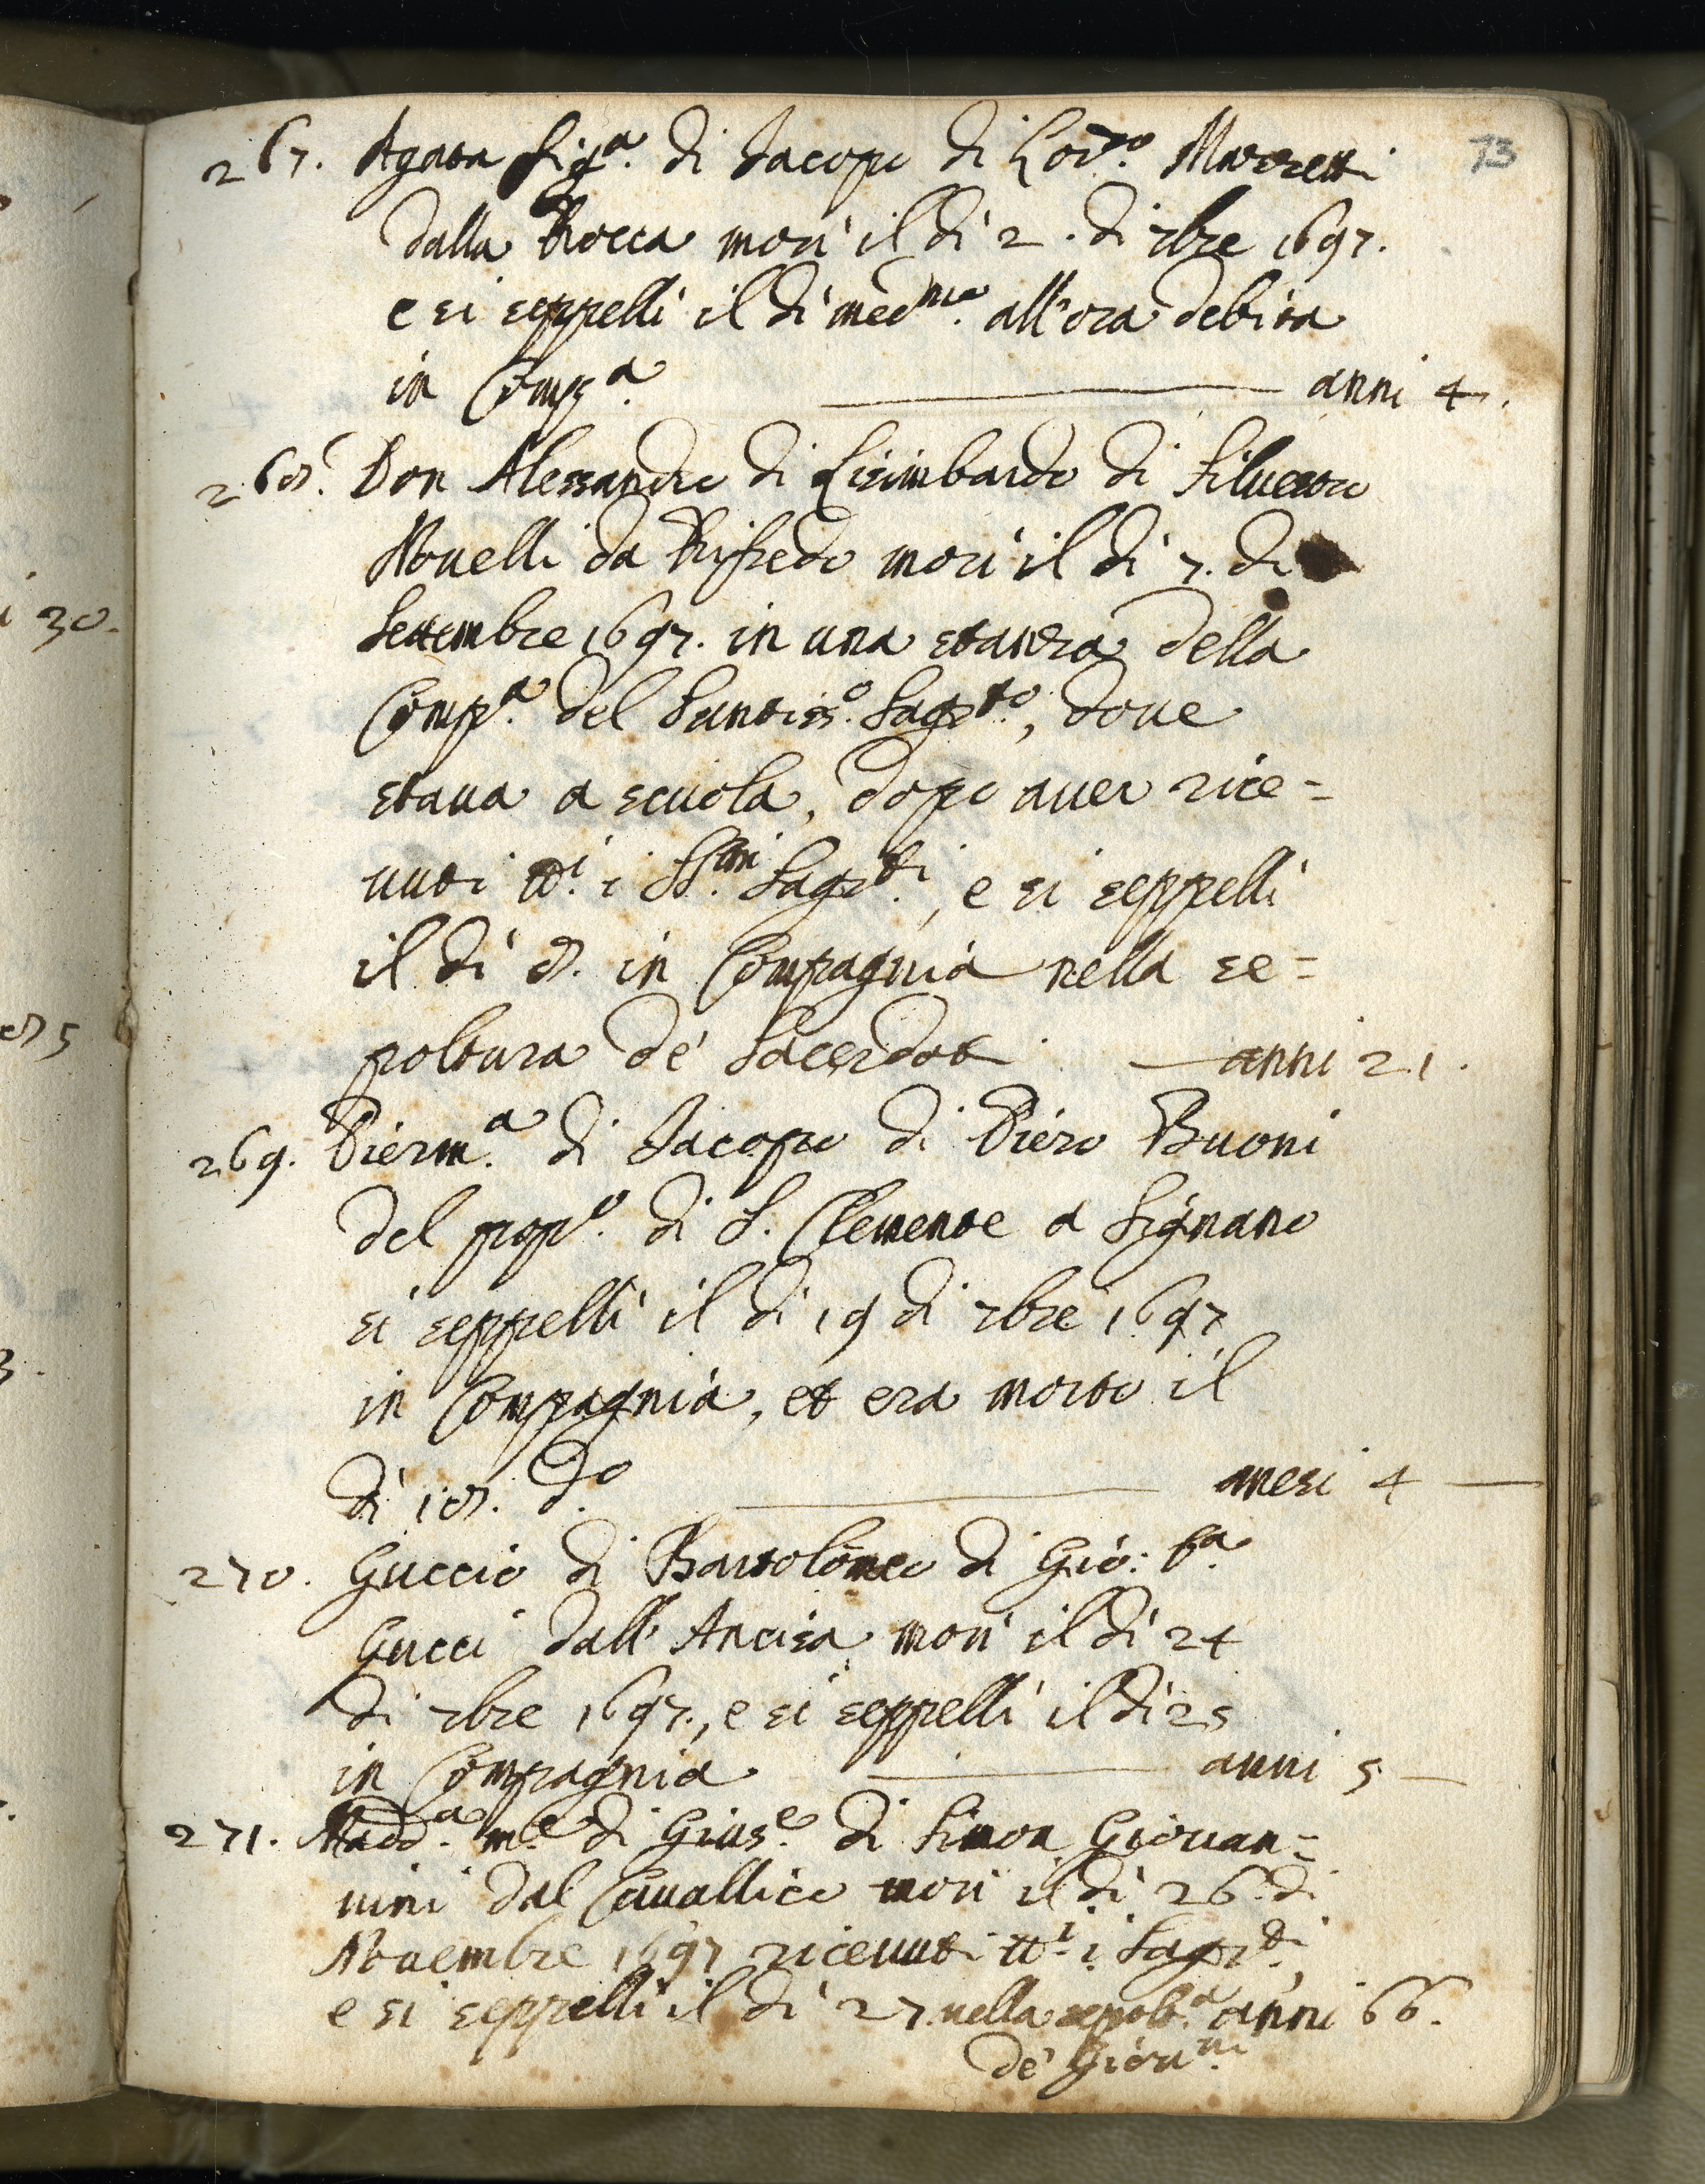 73
267. Agata fig.a di Jacopo di Lor.zo Mazzetti
dalla Rocca morì il dì 2. di 7bre 1697.
e si seppellì il dì med.mo all'ora debita
in Comp.a anni 4.
268. Don Alessandro di Lisimbardo di Silvestro
Novelli da Rifredo morì il dì 7. di
Settembre 1697. in una stanza della
Comp.a del Santiss.o Sagr.to, dove
stava a scuola, dopo aver rice=
vuti tt.i i SS.mi Sagr.ti, e si seppellì
il dì 8. in Compagnia nella se=
poltura de' Sacerdoti anni 21.
269. Pierm.a di Jacopo di Piero Buoni
del pop.o di S. Clemente a Signano
si seppellì il dì 19 di 7bre 1697
in Compagnia, et era morto il
dì 18. d.o mesi 4
270. Guccio di Bartolomeo di Gio: B.a
Gucci dall'Ancisa morì il dì 24
di 7bre 1697., e si seppellì il dì 25
in Compagnia anni 5
271. Madd.a m.e di Gius.e di Simon Giovan=
nini dal Cavallico morì il dì 26 di
Novembre 1697 ricevuti tt.i i Sagr.ti,
e si seppellì il dì 27 nella sepolt.a anni 66.
de' Giov.ni